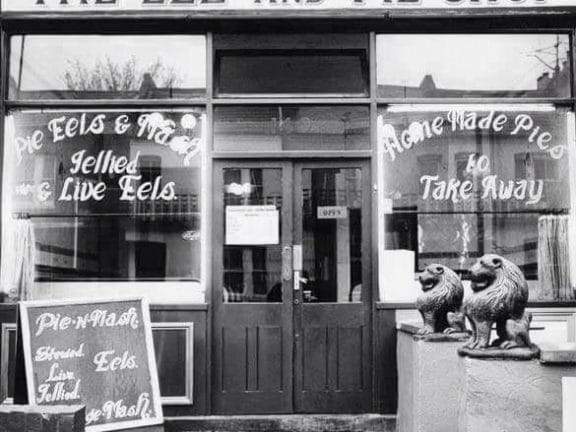 THE EEL AND PIE SHOP
Pie Eels & Mash
Jellied
& Live Eels.
OPEN
Home Made Pies
to
Take Away
Pie-N-Mash.
Stewed.
Live.
Jellied.
Eels.
Mash.